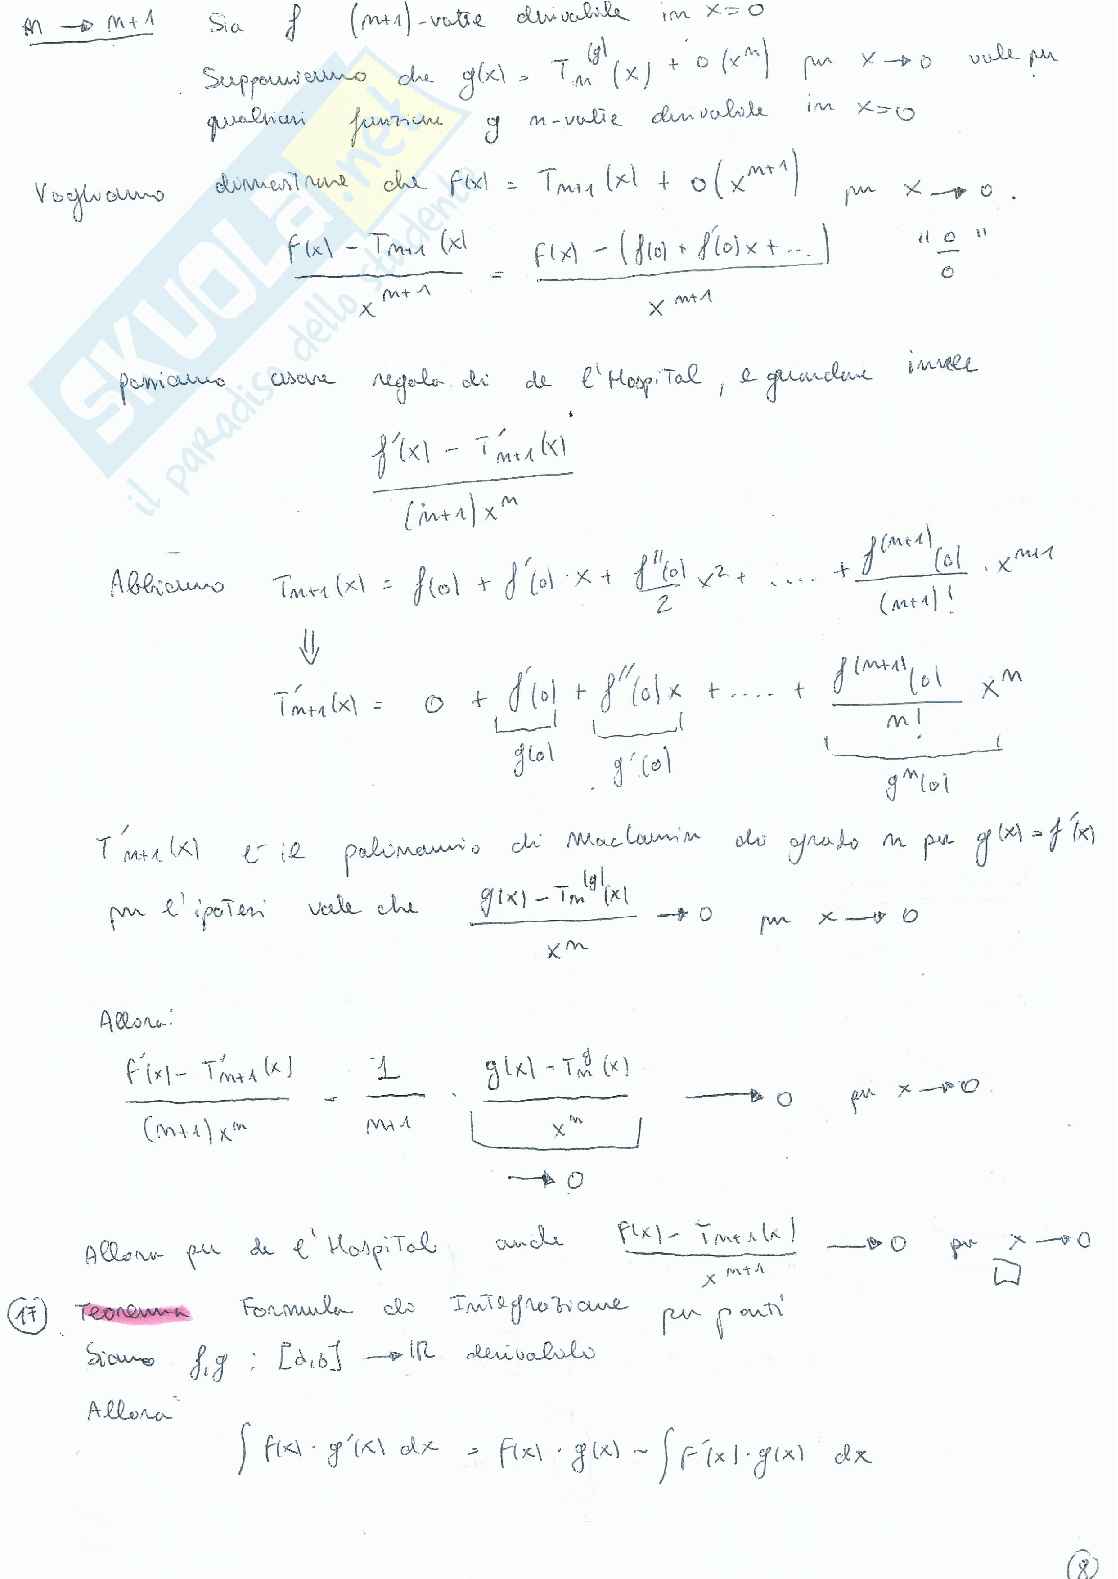 n → n+1 Sia f (n+1)-volte derivabile in x=0
Supponiamo che g(x) = Tn^(g)(x) + o(x^n) per x→0 vale per
qualsiasi funzione g n-volte derivabile in x=0
Vogliamo dimostrare che f(x) = Tn+1(x) + o(x^n+1) per x → 0.
f(x) - Tn+1(x) / x^n+1 = f(x) - (f(0) + f'(0)x + ...) / x^n+1 "0/0"
possiamo usare regola di de l'Hospital, e guardare invece
f'(x) - T'n+1(x) / (n+1)x^n
Abbiamo Tn+1(x) = f(0) + f'(0)·x + f''(0)/2 x^2 + .... + f^(n+1)(0)/(n+1)! · x^n+1
⇓
T'n+1(x) = 0 + f'(0) + f''(0)x + .... + f^(n+1)(0)/n! x^n
g(0) g'(0) g^n(0)
T'n+1(x) è il polinomio di Maclaurin di grado n per g(x) = f'(x)
per l'ipotesi vale che g(x) - Tn^(g)(x) / x^n → 0 per x → 0
Allora:
f'(x) - T'n+1(x) / (n+1)x^n = 1/n+1 · g(x) - Tn^g(x) / x^n → 0 per x → 0.
→ 0
Allora per de l'Hospital anche f(x) - Tn+1(x) / x^n+1 → 0 per x → 0
□
17 Teorema Formula di Integrazione per parti
Siano f,g : [a,b] → ℝ derivabili
Allora
∫ f(x) · g'(x) dx = f(x) · g(x) - ∫ f'(x) · g(x) dx
8
SKUOLA.net
il paRadiso dello studente